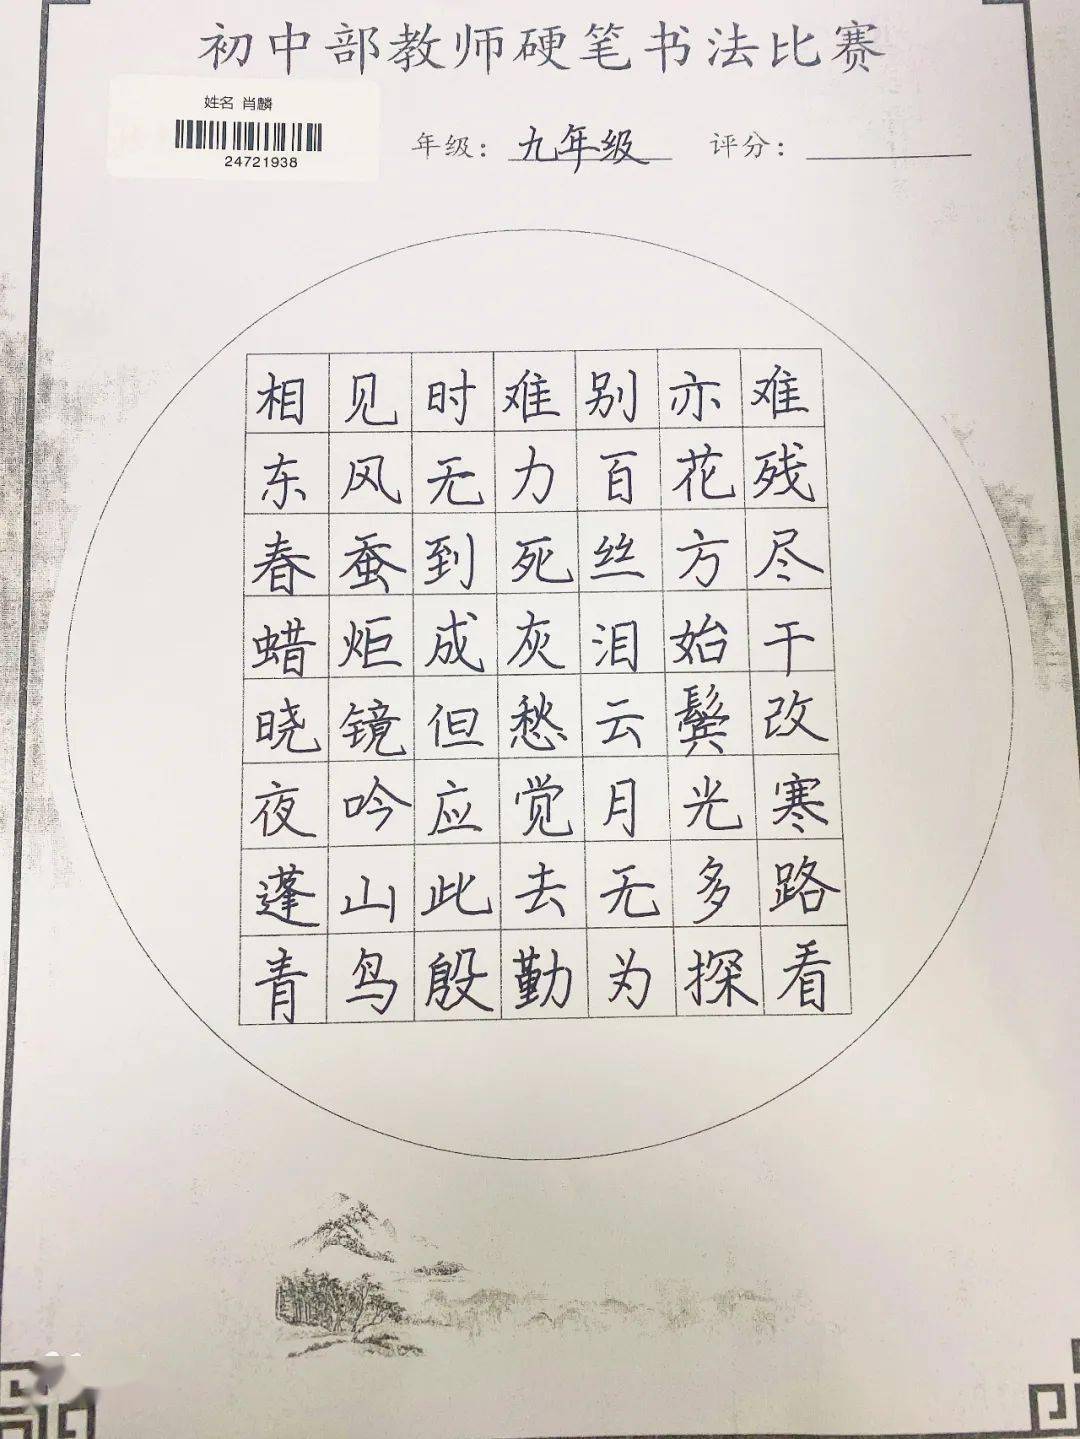 初中部教师硬笔书法比赛
姓名 肖麟
24721938
年级：九年级 评分：
相见时难别亦难
东风无力百花残
春蚕到死丝方尽
蜡炬成灰泪始干
晓镜但愁云鬓改
夜吟应觉月光寒
蓬山此去无多路
青鸟殷勤为探看